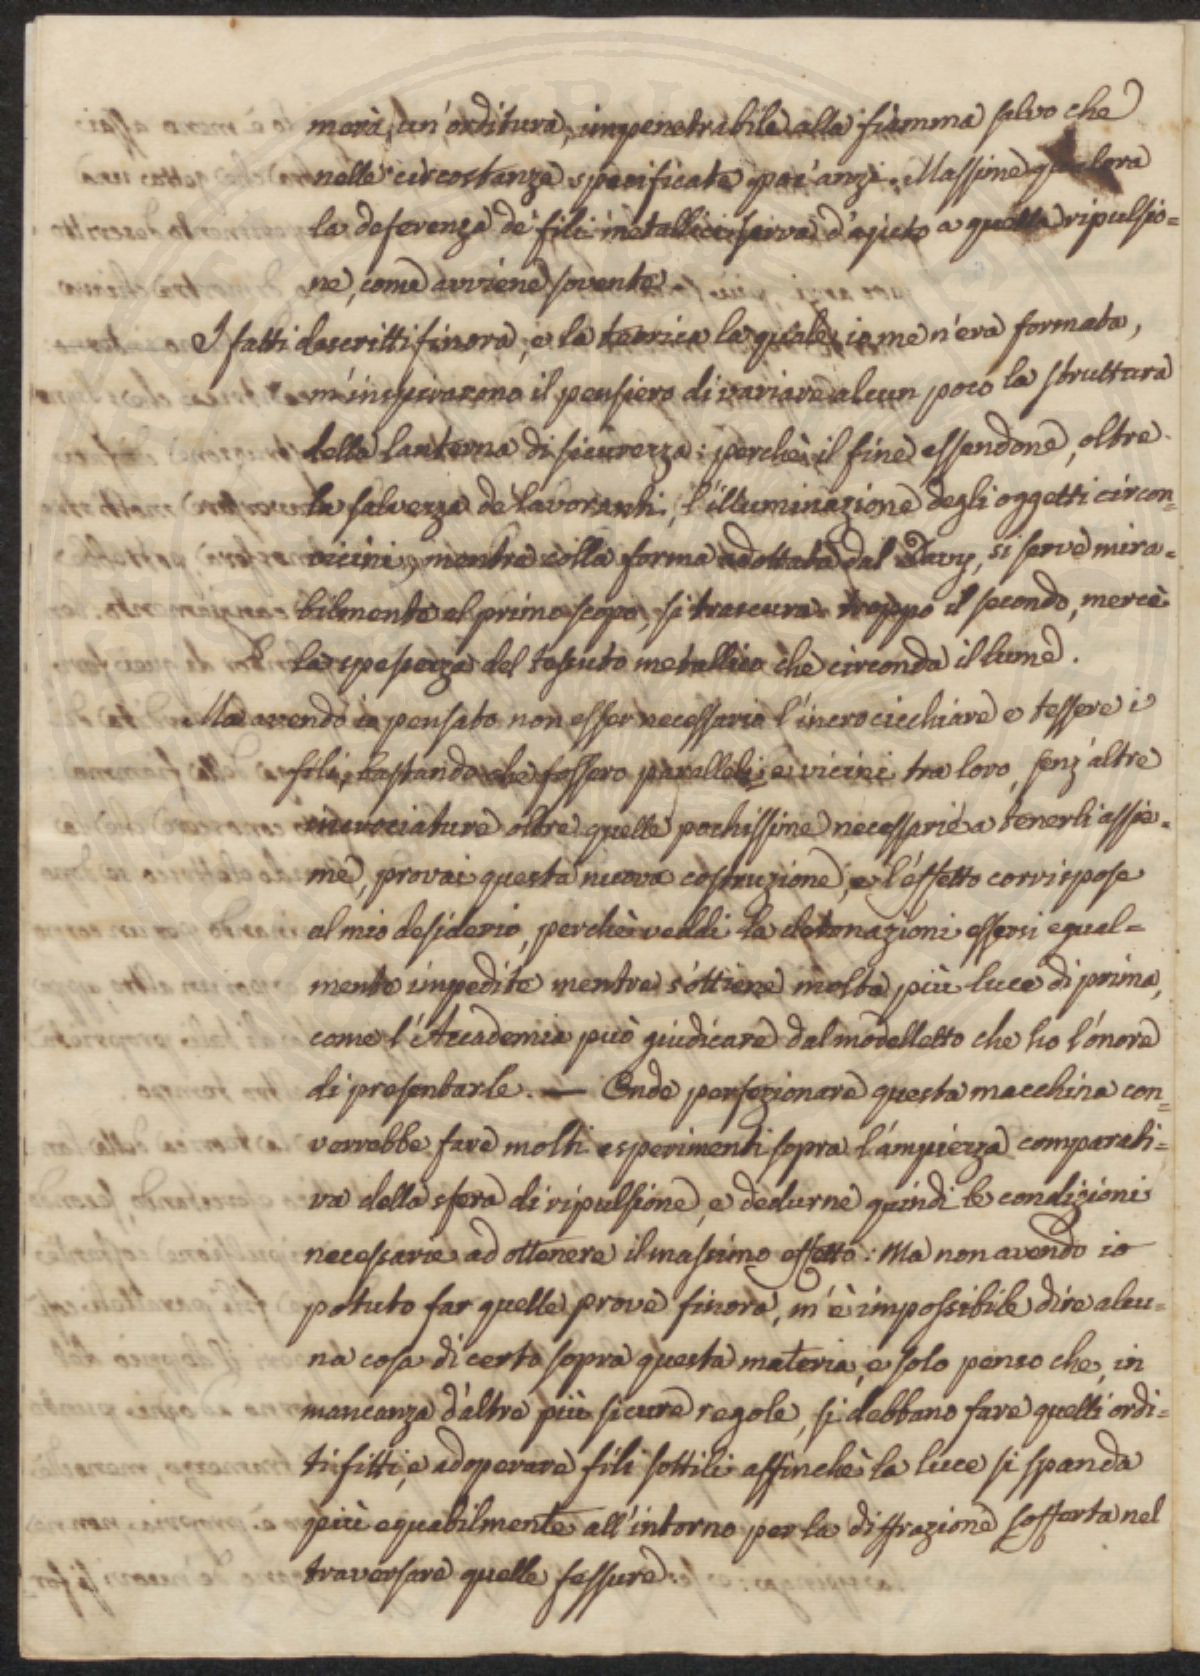 merà, un'orditura, impenetrabile alla fiamma salvo che
nelle circostanze specificate poc'anzi. Massime qualora
la deferenza de' fili metallici serva d'ajuto a quella ripulsio=
ne, come avviene sovente.
I fatti descritti finora, e la teorica la quale io me n'era formata,
m'inspirarono il pensiero di variare alcun poco la struttura
della lanterna di sicurezza: perchè il fine essendone, oltre
la salvezza de' lavoranti, l'illuminazione degli oggetti circon=
vicini, mentre colla forma adottata dal Davy, si serve mira=
bilmente al primo scopo, si trascura troppo il secondo, mercè
la spessezza del tessuto metallico che circonda il lume.
Ma avendo io pensato non esser necessario l'incrocicchiare e tessere i
fili, bastando che fossero paralleli e vicini tra loro, senz'altre
incrociature oltre quelle pochissime necessarie a tenerli assie=
me, provai questa nuova costruzione, e l'effetto corrispose
al mio desiderio, perchè veddi le detonazioni essersi egual=
mente impedite mentre s'ottiene molta più luce di prima,
come l'Accademia può giudicare dal modelletto che ho l'onore
di presentarle. — Onde perfezionare questa macchina con=
verrebbe fare molti esperimenti sopra l'ampiezza comparati=
va della sfera di ripulsione, e dedurne quindi le condizioni
necessarie ad ottenere il massimo effetto: Ma non avendo io
potuto far quelle prove finora, m'è impossibile dire alcu=
na cosa di certo sopra questa materia, e solo penso che, in
mancanza d'altre più sicure regole, si debbano fare quelli ordi=
ti fitti, e adoperare fili sottili affinchè la luce si spanda
più equabilmente all'intorno per la diffrazione sofferta nel
traversare quelle fessure.